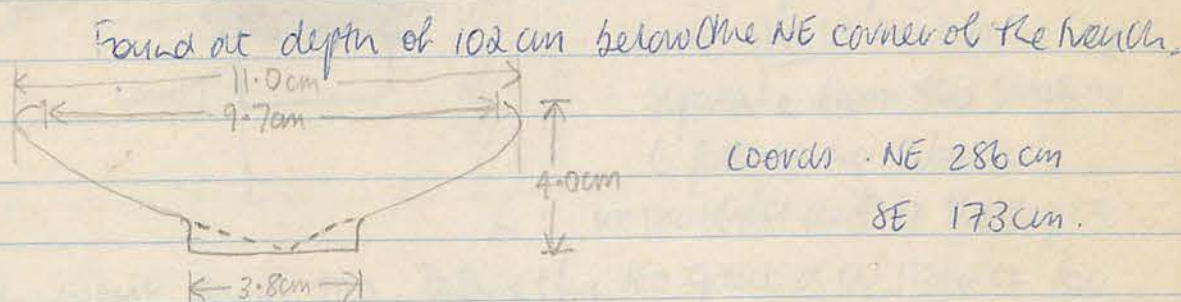 Found at depth of 102 cm below the NE corner of the trench.
11.0cm
9.7cm
4.0cm
3.8cm
Coords . NE 286 cm
SE 173 cm.